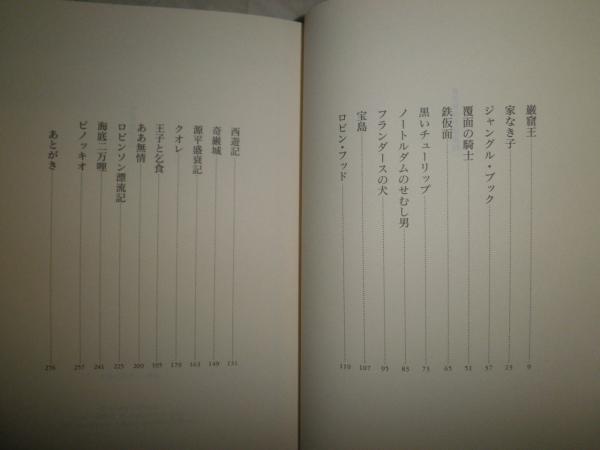 巌窟王 9
家なき子 23
ジャングル・ブック 37
覆面の騎士 51
鉄仮面 65
黒いチューリップ 73
ノートルダムのせむし男 83
フランダースの犬 95
宝島 107
ロビン・フッド 119
西遊記 131
奇巌城 149
源平盛衰記 163
クオレ 179
王子と乞食 195
ああ無情 209
ロビンソン漂流記 225
海底二万哩 241
ピノッキオ 257
あとがき 276